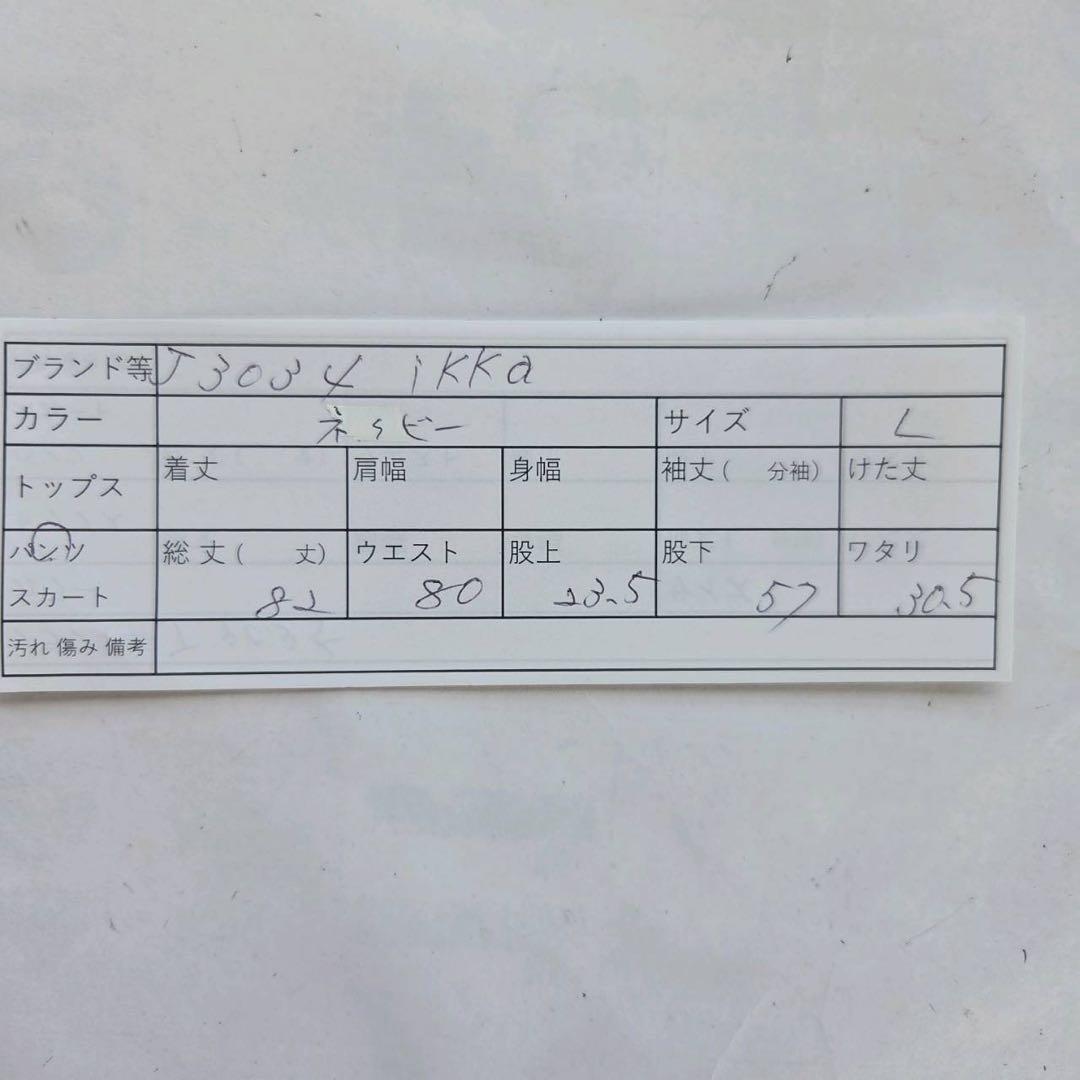 ブランド等 J3034 ikka
カラー ネッビー サイズ L
トップス 着丈 肩幅 身幅 袖丈( 分袖) けた丈
パンツ 総丈( 丈) ウエスト 股上 股下 ワタリ
スカート 82 80 23.5 57 30.5
汚れ 傷み 備考